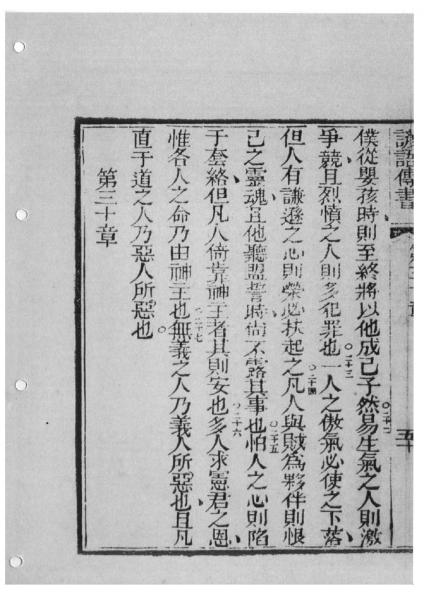 諺語傳書
五十
僕從嬰孩時則至終將以他成己子然○二十二易生氣之人則激
爭競且烈憤之人則多犯罪也○二十三一人之傲氣必使之下落
但人有謙遜之心則榮必扶起之○二十四凡人與賊為夥伴則恨
己之靈魂且他聽盟誓時尚不露其事也○二十五怕人之心則陷
于套絡但凡人倚靠神主者其則安也○二十六多人求憲君之恩
惟各人之命乃由神主也○二十七無義之人乃義人所惡也且凡
直于道之人乃惡人所惡也
第三十章